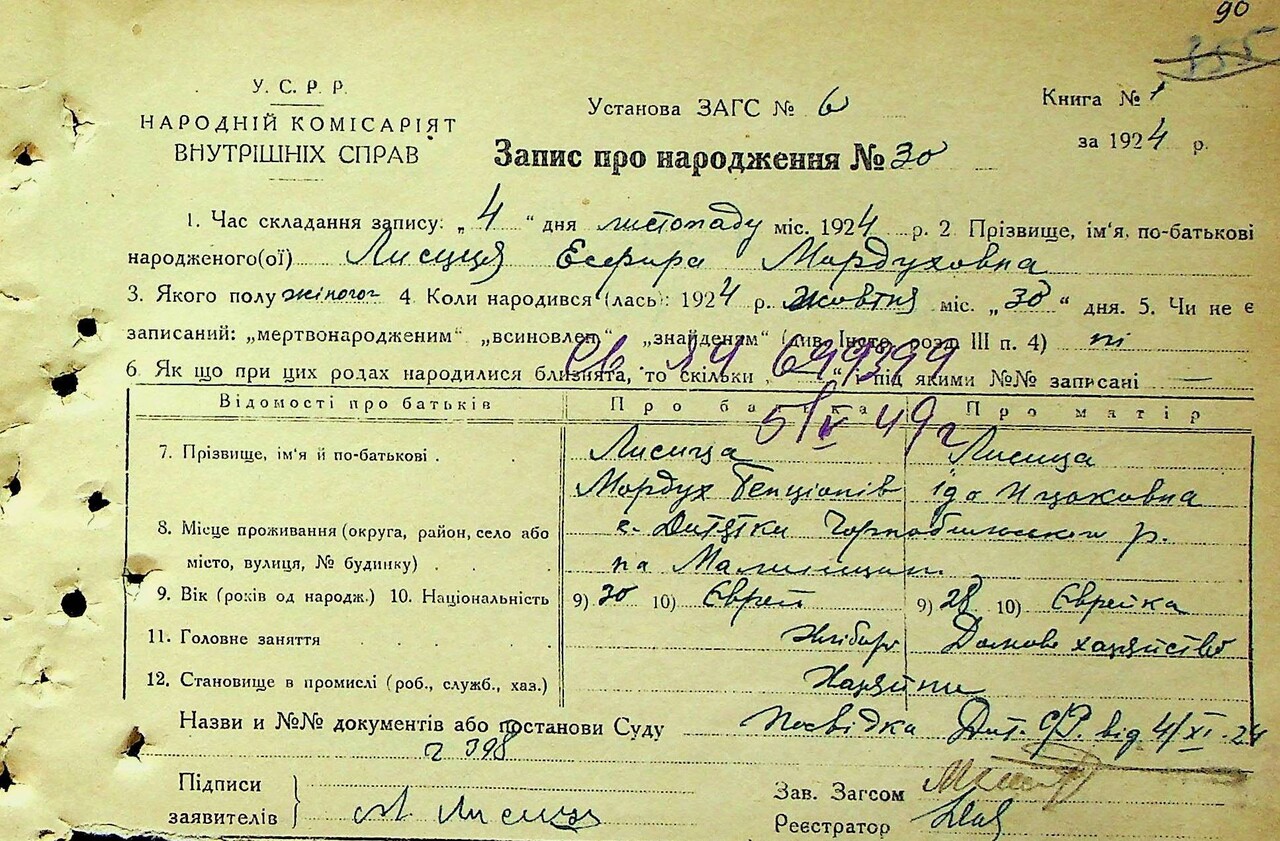 90
355
У. С. Р. Р.
НАРОДНІЙ КОМІСАРІЯТ
ВНУТРІШНІХ СПРАВ
Установа ЗАГС № 6
Книга № 1
за 1924 р.
Запис про народження № 30
1. Час складання запису: „4“ дня листопаду міс. 1924 р. 2 Прізвище, ім'я, по-батькові
народженого(ої) Лисиця Есфира Мордуховна
3. Якого полу жіночог 4. Коли народився (лась): 1924 р. жовтня міс. „30“ дня. 5. Чи не є
записаний: „мертвонародженим“ „всиновлен“ „знайденям“ (див. Інстр. розд. III п. 4) ні
6 Як що при цих родах народилися близнята, то скільки „ “ і під якими №№ записані —
Св. 699399
5/V 49 г
Відомості про батьків Про батька Про матір
7. Прізвище, ім'я й по-батькові . Лисица Лисица
Мордух Бенціонів Іда Ицковна
8. Місце проживання (округа, район, село або с. Дитятки Чорнобильськ р.
місто, вулиця, № будинку) на
9. Вік (років од народж.) 10. Національність 9) 30 10) Єврей 9) 28 10) Єврейка
11. Головне заняття Хлібор Домове хазяйство
12. Становище в промислі (роб., служб., хаз.)
Назви и №№ документів або постанови Суду Посвідка Дит. С/Р. від 4/XI-24
398
Підписи
заявителів М. Лисиця
Зав. Загсом
Реєстратор